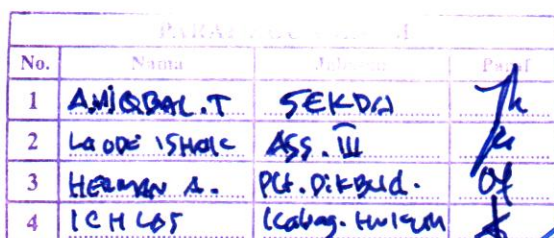 PARAF
No. Nama Paraf
1 A.M IQBAL.T SEKDA
2 LA ODE ISHAK ASS. III
3 HERMAN A. Plt. Dikbud.
4 ICHLAS Kabag. Hukum